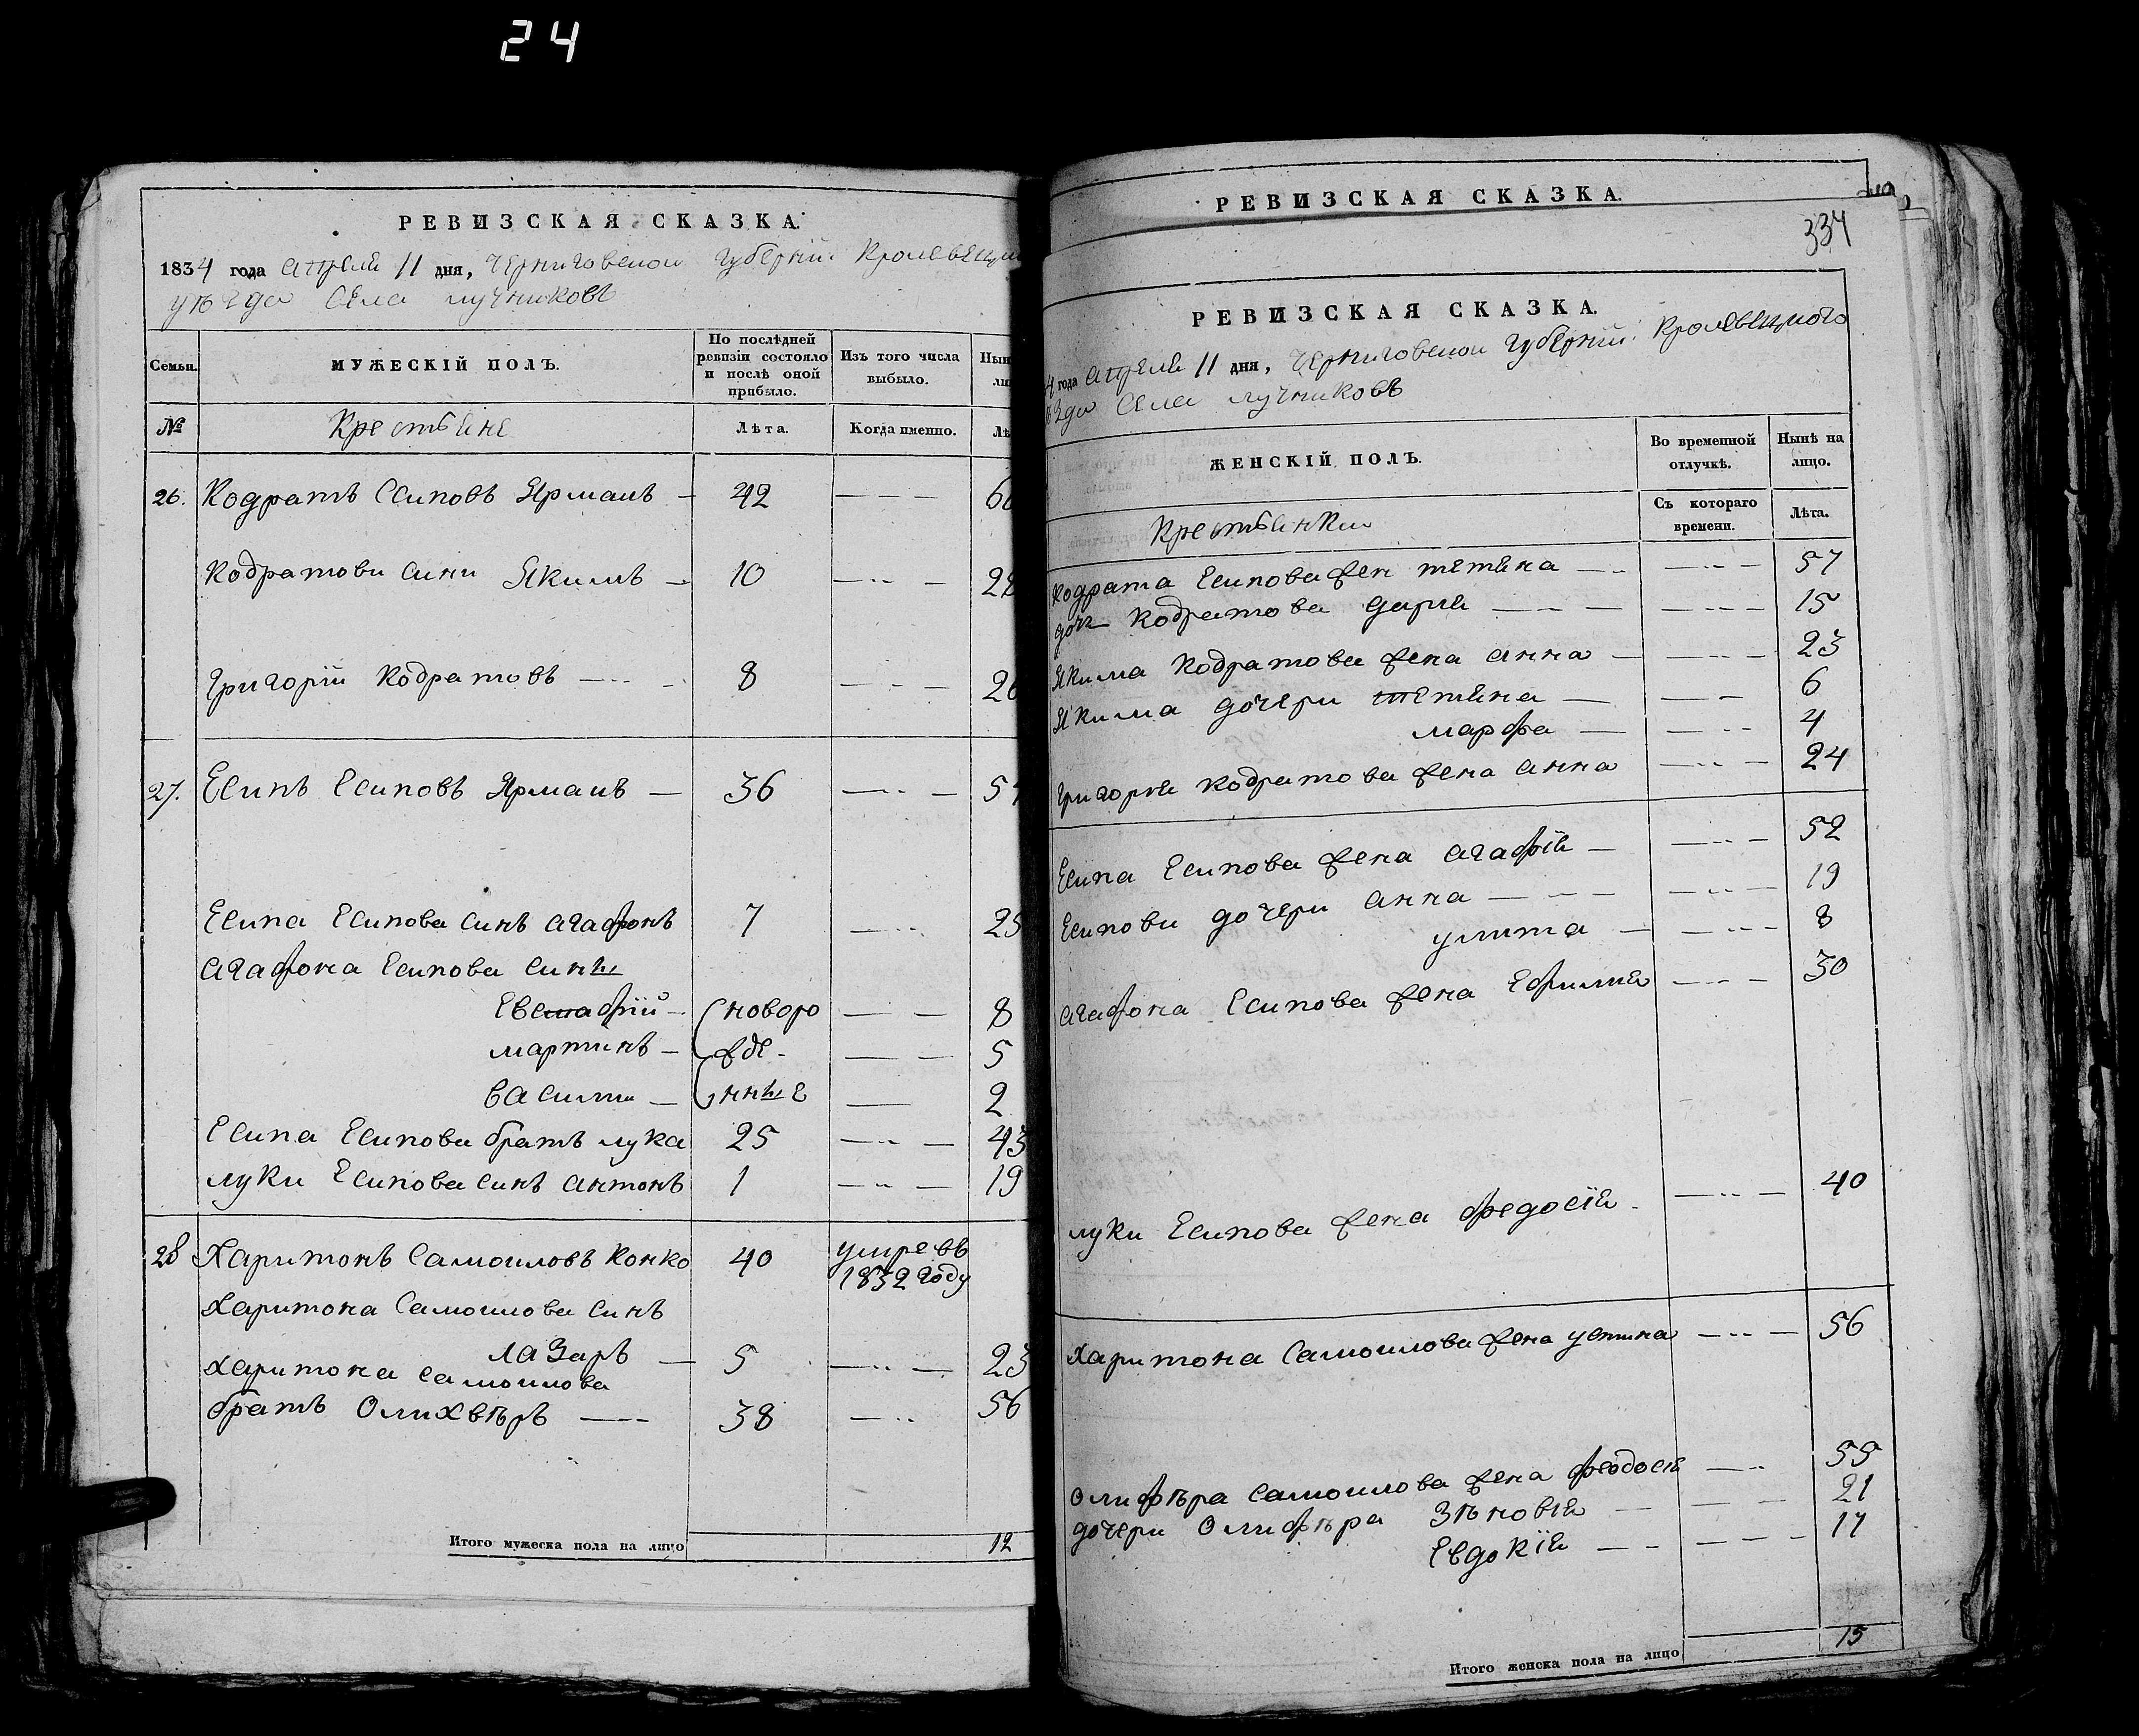 24
РЕВИЗСКАЯ СКАЗКА.
1834 года апреля 11 дня, Черниговской губернiи Кролевецк
уѣзда села лучниковъ
Семьи.
МУЖЕСКIЙ ПОЛЪ.
По послѣдней ревизiи состояло и послѣ оной прибыло.
Изъ того числа выбыло.
Нын
ли
№
Крестьяне
Лѣта.
Когда именно.
Лѣ
26. Кодратъ Есиповъ Ярмакъ — 42
Кодратови сини Якимъ — 10
Григорiй Кодратовъ — 8
27. Есипъ Есиповъ Ярмакъ — 36
Есипа Есипова синъ агафонъ 7 25
агафона Есипова сины
Евстафiй — новоро 8
мартинъ — жде- 5
василiи — нные 2
Есипа Есипови братъ лука 25 43
луки Есипова синъ антонъ 1 19
28 Харитонъ Самоиловъ Конко 40 умревъ
1832 году
Харитона Самоилова синъ
Лазаръ — 5 23
харитона самоилова
братъ Олихвѣръ — 38 56
Итого мужеска пола на лицо 12
РЕВИЗСКАЯ СКАЗКА.
334
РЕВИЗСКАЯ СКАЗКА.
4 года апреля 11 дня, Черниговской губернiи Кролевецкого
ѣзда села лучниковъ
ЖЕНСКIЙ ПОЛЪ.
Во временной отлучкѣ.
Нынѣ на лицо.
Крестьянки
Съ котораго времени.
Лѣта.
Кодрата Есипова жен тетяна — 57
доч Кодратова дария — 15
Якима Кодратова жена анна — 23
Якима дочери тетяна — 6
марфа — 4
григория кодратова жена анна 24
Есипа Есипова жена агафiя — 52
Есипови дочери анна — 19
улита — 8
агафона Есипова жена Ефимия 30
луки Есипова жена федосiя 40
Харитона Самоилова жена устина 56
Олифѣра самоилова жена феодосiя 55
дочери Олифѣра Зѣновiя 21
Евдокiя — 17
Итого женска пола на лицо 15